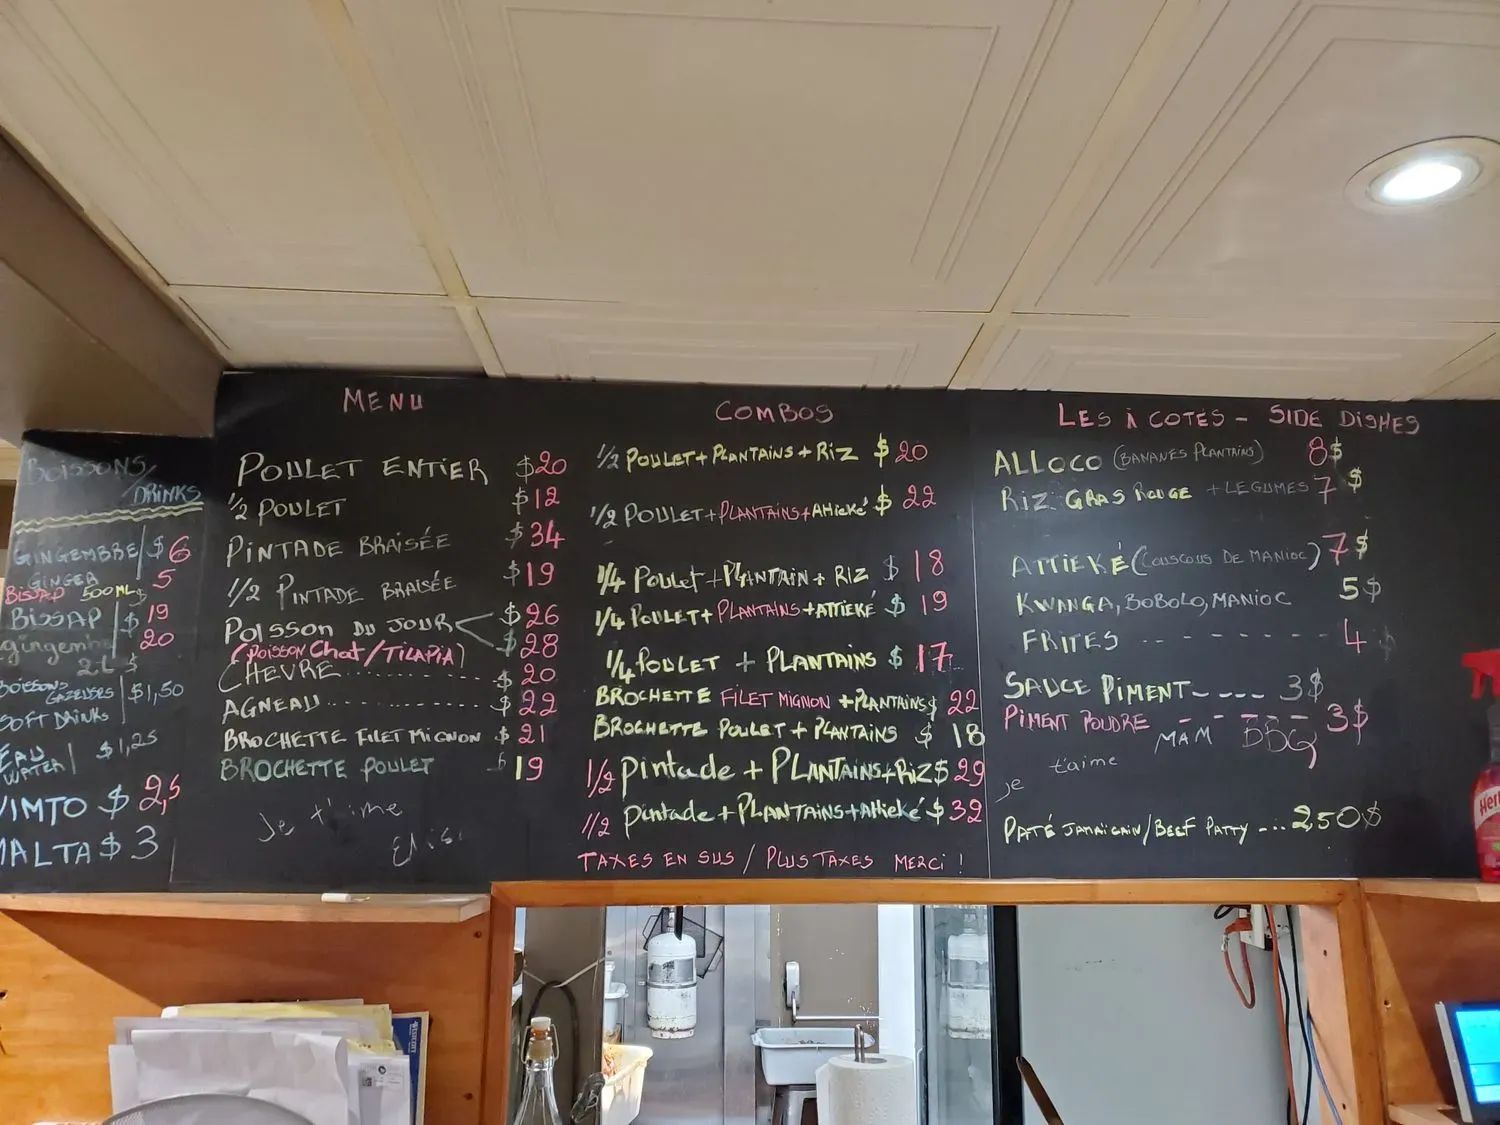 BOISSONS/
DRINKS
GINGEMBRE/ $6
GINGER
BISSAP 500ML $ 5
BISSAP $ 19
gingemb 20
2L $
BOISSONS
GAZEUSES $1,50
SOFT DRINKS
EAU $1,25
WATER
VIMTO $ 2,5
MALTA $ 3
MENU
POULET ENTIER $20
1/2 POULET $12
PINTADE BRAISÉE $34
1/2 PINTADE BRAISÉE $19
POISSON DU JOUR $26
$28
(POISSON Chat/TILAPIA)
CHEVRE........... $ 20
AGNEAU........... $ 22
BROCHETTE FILET MIGNON $ 21
BROCHETTE POULET $ 19
Je t'aime
COMBOS
1/2 POULET+PLANTAINS+RIZ $ 20
1/2 POULET+PLANTAINS+Attieké $ 22
1/4 POULET+PLANTAIN+RIZ $ 18
1/4 POULET+PLANTAINS+ATTIEKÉ $ 19
1/4 POULET + PLANTAINS $ 17
BROCHETTE FILET MIGNON +PLANTAINS $ 22
BROCHETTE POULET + PLANTAINS $ 18
1/2 pintade + PLANTAINS+RIZ $ 29
1/2 pintade+PLANTAINS+Attieké $ 32
TAXES EN SUS / PLUS TAXES MERCI !
LES À COTÉS - SIDE DISHES
ALLOCO (BANANES PLANTAINS) 8$
RIZ GRAS ROUGE +LEGUMES 7 $
ATTIEKÉ (COUSCOUS DE MANIOC) 7$
KWANGA, BOBOLO, MANIOC 5$
FRITES - - - - - - - - 4 $
SAUCE PIMENT- - - - 3$
PIMENT POUDRE - - - - - 3$
MAM BBQ
je t'aime
PATÉ JAMAÏCAIN/BEEF PATTY -... 2,50$